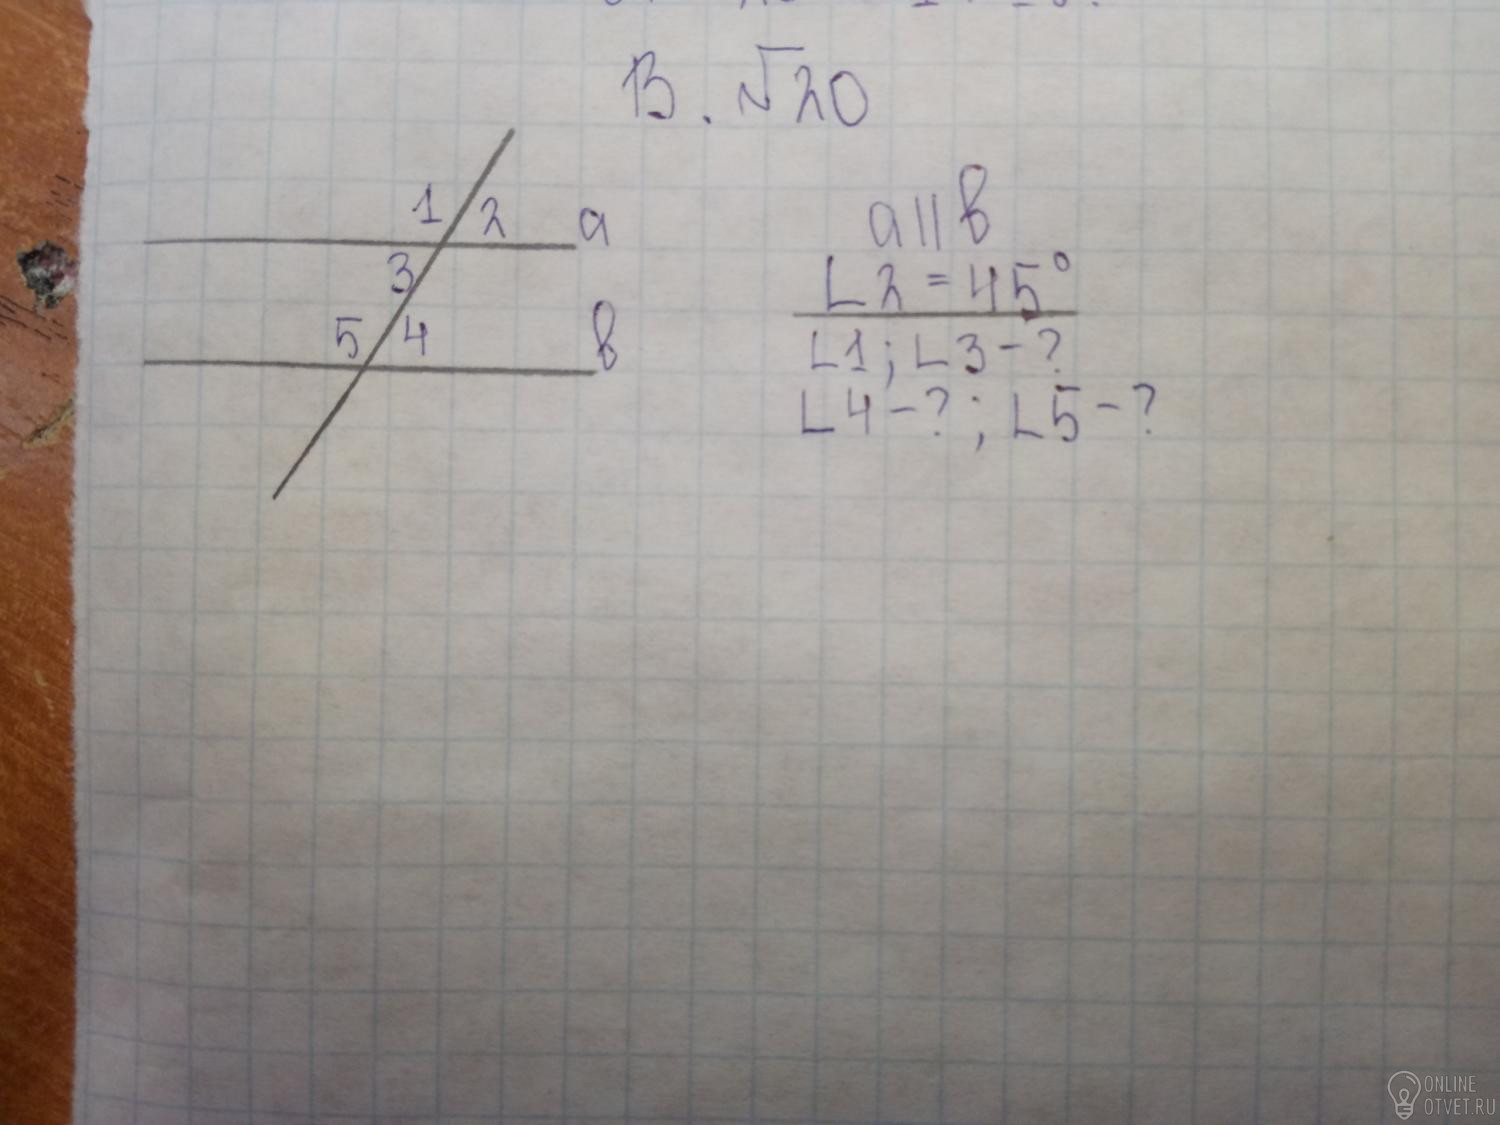 В. √20
1 2 a
3
5 4 в
a || в
∠2 = 45°
∠1; ∠3 - ?
∠4 - ?; ∠5 - ?
ONLINE
OTVET.RU